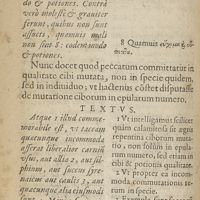 do & potiones. Contrà
verò molestè & grauiter
ferunt, quibus non sunt
assueti, quamuis mali
non sint 8: eodem modo
& potiones.
8 Quamuis
Nunc docet quod peccatum committatur in
qualitate cibi mutata, non in specie quidem,
sed in indiuiduo; vt hactenus côstet disputasse
de mutatione ciborum in epularum numero,
TEXTVS.
Atque 1 illud comme-
morabile est, vt taccam
quacunque incommoda
afferat liberalior carniũ
vsus, aut allia 2, aut sil-
phium, aut succus
naicus aut caulis 3, aut
quacunque alia eiusmodi
1 Vt intelligamus scilicet
quàm calamitosa sit ægris
repentina mutatio, non
modo in epularum nume-
ro, sed in ipsis quoque ci-
bis, & ipsorum qualitatib.
2 Vt propter ea incom-
moda, commutationis ter-
rorem in species